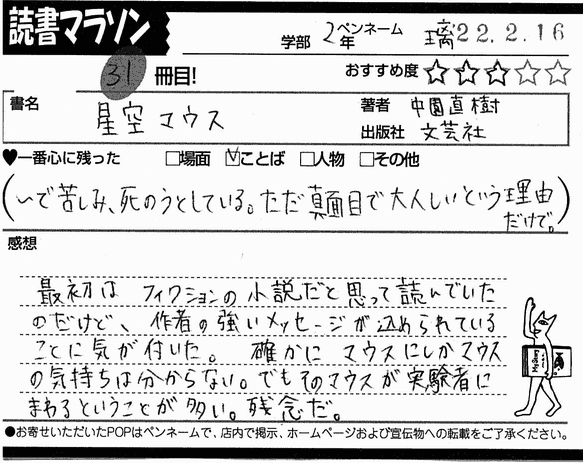 読書マラソン
学部 2年 ペンネーム 璃 '22.2.16
31 冊目!
おすすめ度 ☆☆☆☆☆
書名 星空マウス
著者 中園直樹
出版社 文芸社
♥一番心に残った □場面 ☑ことば □人物 □その他
(〜で苦しみ、死のうとしている。ただ真面目で大人しいという理由
だけで。)
感想
最初は フィクションの小説だと思って読んでいた
のだけど、作者の強いメッセージが込められている
ことに気が付いた。 確かに マウスにしかマウス
の気持ちは分からない。でもそのマウスが実験者に
まわるということが多い。残念だ。
●お寄せいただいたPOPはペンネームで、店内で掲示、ホームページおよび宣伝物への転載をご了承ください。